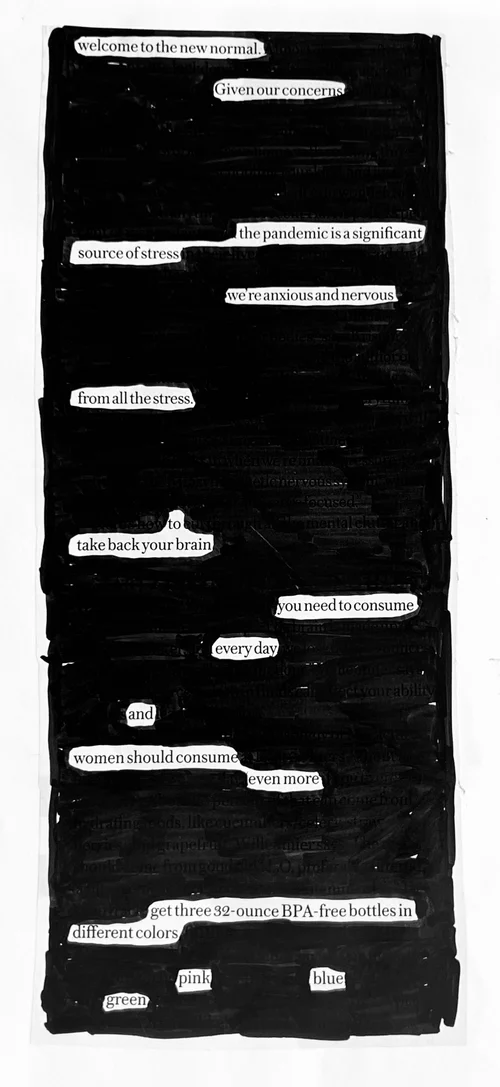 welcome to the new normal.
Given our concerns
the pandemic is a significant
source of stress
we're anxious and nervous
from all the stress.
to
take back your brain
you need to consume
every day
and
women should consume
even more
get three 32-ounce BPA-free bottles in
different colors
pink blue
green